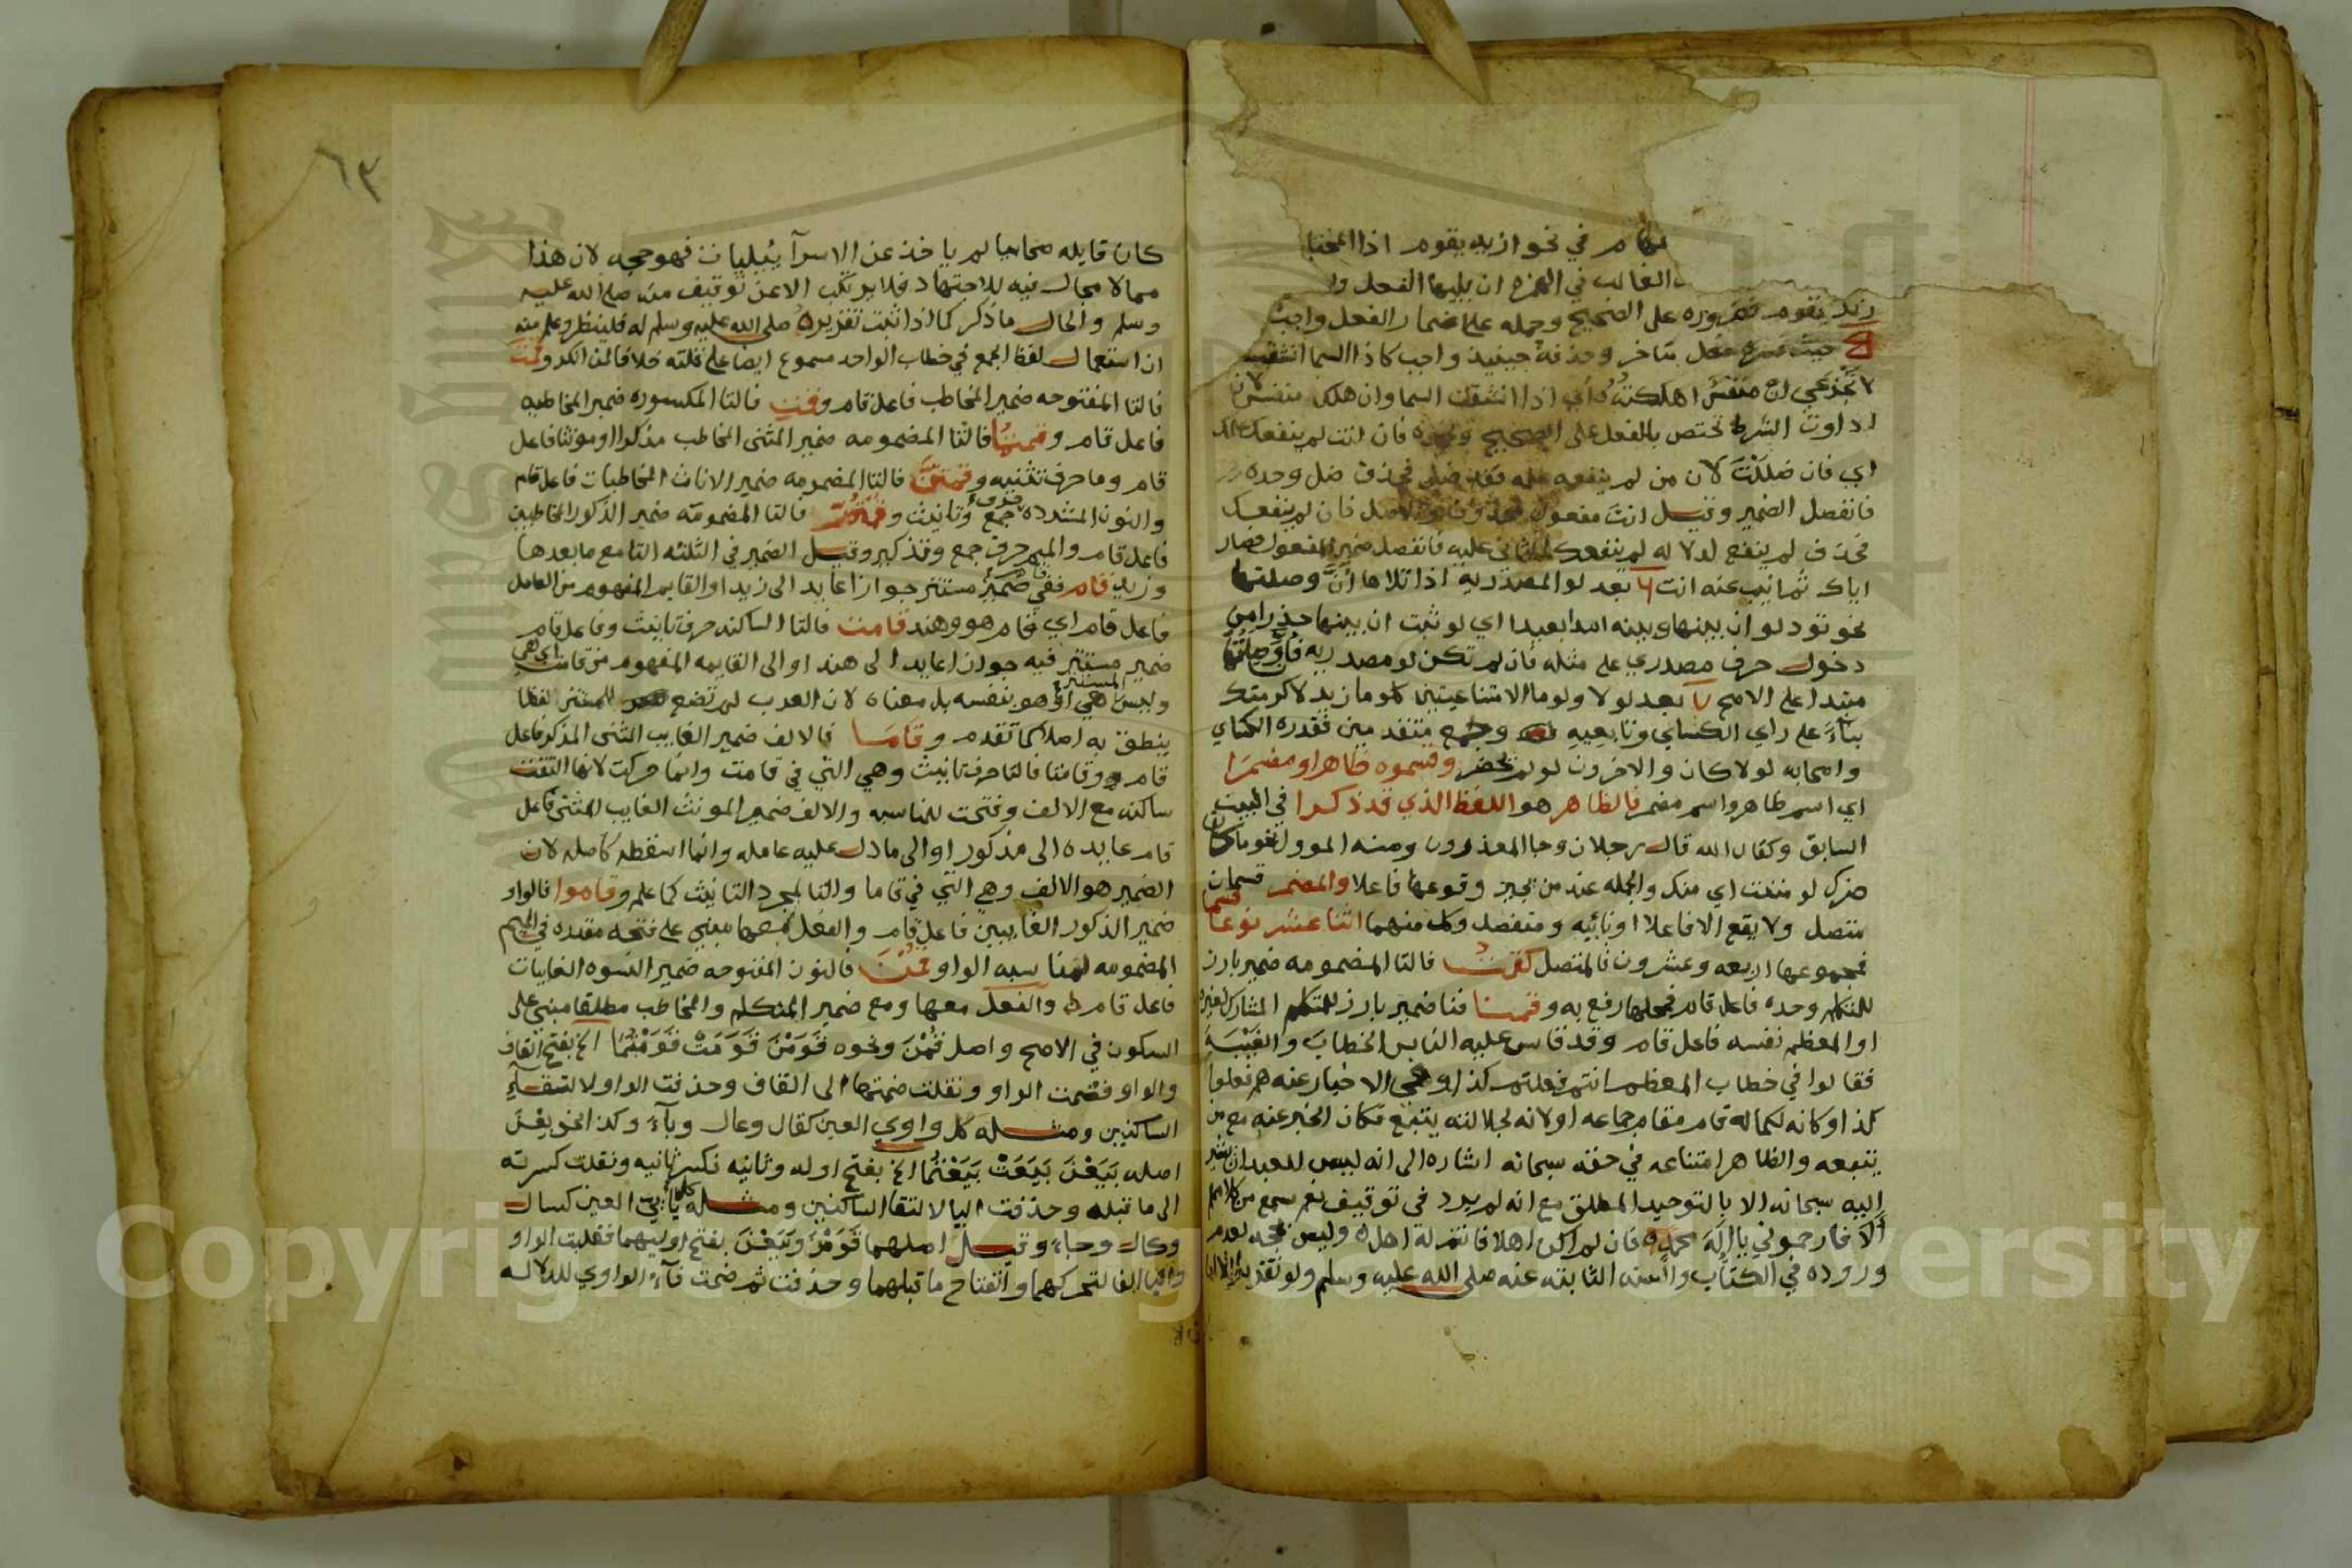 في نحو ازيد يقوم اذا المختا
الغالب في الهمزه ان يليها الفعل و
زيد يقوم فضروره على الصحيح وحمله على اضمار الفعل واجب
حيث فعل متاخر وحذفه حينيذ واجب كاذا السما انشقت
لا تجزعي ان منفس اهلكته اي اذا انشقت السما وان هلك منفس لان
ادوات الشرط تختص بالفعل على الصحيح ونحوه فان انت لم ينفعك علمك
اي فان ضللت لان من لم ينفعه علمه فقد ضل فحذف ضل وحده
فانفصل الضمير وقيل انت مفعول الاصل فان لم ينفعك
فحذف لم ينفع لدلاله لم ينفعك الثاني عليه فانفصل ضمير المفعول فصار
اياك ثم انيب عنه انت بعد لو المصدريه اذا تلاها ان وصلتها
نحو تود لو ان بينها وبينه امدا بعيدا اي لو ثبت ان بينها حذرا من
دخول حرف مصدري على مثله فان لم تكن لو مصدريه فان وصلتها
مبتدا على الاصح بعد لولا ولوما الامتناعيتين كلوما زيد لاكرمتك
بناء على راي الكساي وتابعيه وجمع متقدمين فقدره الكساي
واصحابه لولا كان والاخرون لو لم يحضر وقسموه ظاهرا ومضمرا
اي اسم ظاهر واسم مضمر فالظاهر هو اللفظ الذي قد ذكرا في البيت
السابق وكقال الله قال رجلان وجا المعذرون ومنه الموول نحو ما كان
ضرك لو مننت اي منك والجمله عند من يجيز وقوعها فاعلا والمضمر قسمان
متصل ولا يقع الا فاعلا او نائبه ومنفصل وكل منهما اثنا عشر نوعا قسما
فمجموعها اربعه وعشرون فالمتصل كقمت فالتا المضمومه ضمير بارز
للمتكلم وحده فاعل قام فمحلها رفع به وقمنا فنا ضمير بارز للمتكلم المشارك لغيره
او المعظم نفسه فاعل قام وقد قاس عليه الناس الخطاب والغيبة
فقالوا في خطاب المعظم انتم فعلتم كذا وفي الاخبار عنه هم فعلوا
كذا وكانه لكماله قام مقام جماعه او لانه لجلالته يتبع فكان الخبر عنه مع من
يتبعه والظاهر امتناعه في حقه سبحانه اشاره الى انه ليس للعبد ان يشير
اليه سبحانه الا بالتوحيد المطلق مع انه لم يرد في توقيف نعم سمع من كلامهم
الا فارحموني يا اله محمد فان لم اكن اهلا فانت له اهل وليس بحجه لعدم
وروده في الكتاب والسنه الثابته عنه صلى الله عليه وسلم ولو
٦٣
كان قايله صحابيا لم ياخذ عن الاسرآيئيليات فهو حجه لان هذا
مما لا مجال فيه للاجتهاد فلا يرتكب الا عن توقيف منه صلى الله عليه
وسلم والحال ما ذكر كما اذا ثبت تقريره صلى الله عليه وسلم له فلينظر وعلم منه
ان استعمال لفظ الجمع في خطاب الواحد مسموع ايضا على قلته خلافا لمن انكره وقمت
فالتا المفتوحه ضمير المخاطب فاعل قام وقمت فالتا المكسوره ضمير المخاطبه
فاعل قام وقمتما فالتا المضمومه ضمير المثنى المخاطب مذكرا او مونثا فاعل
قام وما حرف تثنيه وقمتن فالتا المضمومه ضمير الاناث المخاطبات فاعل قام
والنون المشدده حرف جمع وتانيث وقمتم فالتا المضمومه ضمير الذكور المخاطبين
فاعل قام والميم حرف جمع وتذكير وقيل الضمير في الثلثه التا مع ما بعدها
وزيد قام ففي قام ضمير مستتر جوازا عايد الى زيد او القايم المفهوم من العامل
فاعل قام اي قام هو وهند قامت فالتا الساكنه حرف تانيث وفاعل قام
ضمير مستتر فيه جوازا عايد الى هند او الى القايمه المفهوم من قامت اي هي
وليس المستتر هي او هو بنفسه بل معناه لان العرب لم تضع للمستتر لفظا
ينطق به اصلا كما تقدم وقاما فالالف ضمير الغايب المثنى المذكر فاعل
قام وقامتا فالتا حرف تانيث وهي التي في قامت وانما حركت لانها التقت
ساكنه مع الالف وفتحت للمناسبه والالف ضمير المونث الغايب المثنى فاعل
قام عايده الى مذكور او الى ما دل عليه عامله وانما اسقطه كاصله لان
الضمير هو الالف وهي التي في قاما والتا لمجرد التانيث كما علم وقاموا فالواو
ضمير الذكور الغايبين فاعل قام والفعل معها مبني على فتحه مقدره في الميم
المضمومه لمناسبه الواو وقمن فالنون المفتوحه ضمير النسوه الغايبات
فاعل قام والفعل معها ومع ضمير المتكلم والمخاطب مطلقا مبني على
السكون في الاصح واصل قمن ونحوه قومن قومت قومتما الخ بفتح القاف
والواو فضمت الواو ونقلت ضمتها الى القاف وحذفت الواو لالتقاء
الساكنين ومثله كل واوي العين كقال وعال وبآء وكذا نحو بعن
اصله بيعن بيعت بيعتما الخ بفتح اوله وثانيه فكسر ثانيه ونقلت كسرته
الى ما قبله وحذفت اليا لالتقا الساكنين ومثله كل يائي العين كسال
وكال وجاء وقيل اصلهما قومن وبيعن بفتح اوليهما فقلبت الواو
واليا الفا لتحركهما وانفتاح ما قبلهما وحذفت ثم ضمت فآء الواوي للدلاله
Copyright © King Saud University